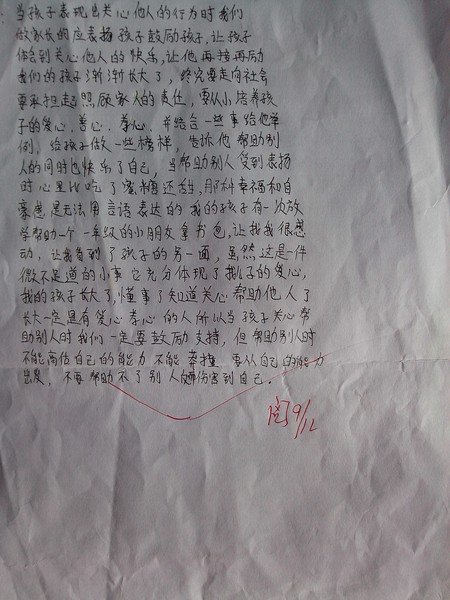 当孩子表现出关心他人的行为时我们
做家长的应表扬孩子鼓励孩子,让孩子
体会到关心他人的快乐,让他再接再励
我们的孩子渐渐长大了,终究要走向社会
要承担起照顾家人的责任,要从小培养孩
子的爱心、善心、孝心、并结合一些事给他举
例、给孩子做一些榜样,告诉他帮助别
人的同时也快乐了自己,当帮助别人受到表扬
时心里比吃了蜜糖还甜,那种幸福和自
豪感是无法用言语表达的我的孩子有一次放
学帮助一个一年级的小朋友拿书包,让我我很感
动,让我看到了孩子的另一面,虽然这是一件
微不足道的小事它充分体现了孩子的爱心,
我的孩子长大了,懂事了知道关心帮助他人了
长大一定是有爱心孝心的人所以当孩子关心帮
助别人时我们一定要鼓励支持,但帮助别人时
不能高估自己的能力不能莽撞,要从自己的能力
出发,不要帮助不了别人伤害到自己。
阅9/12